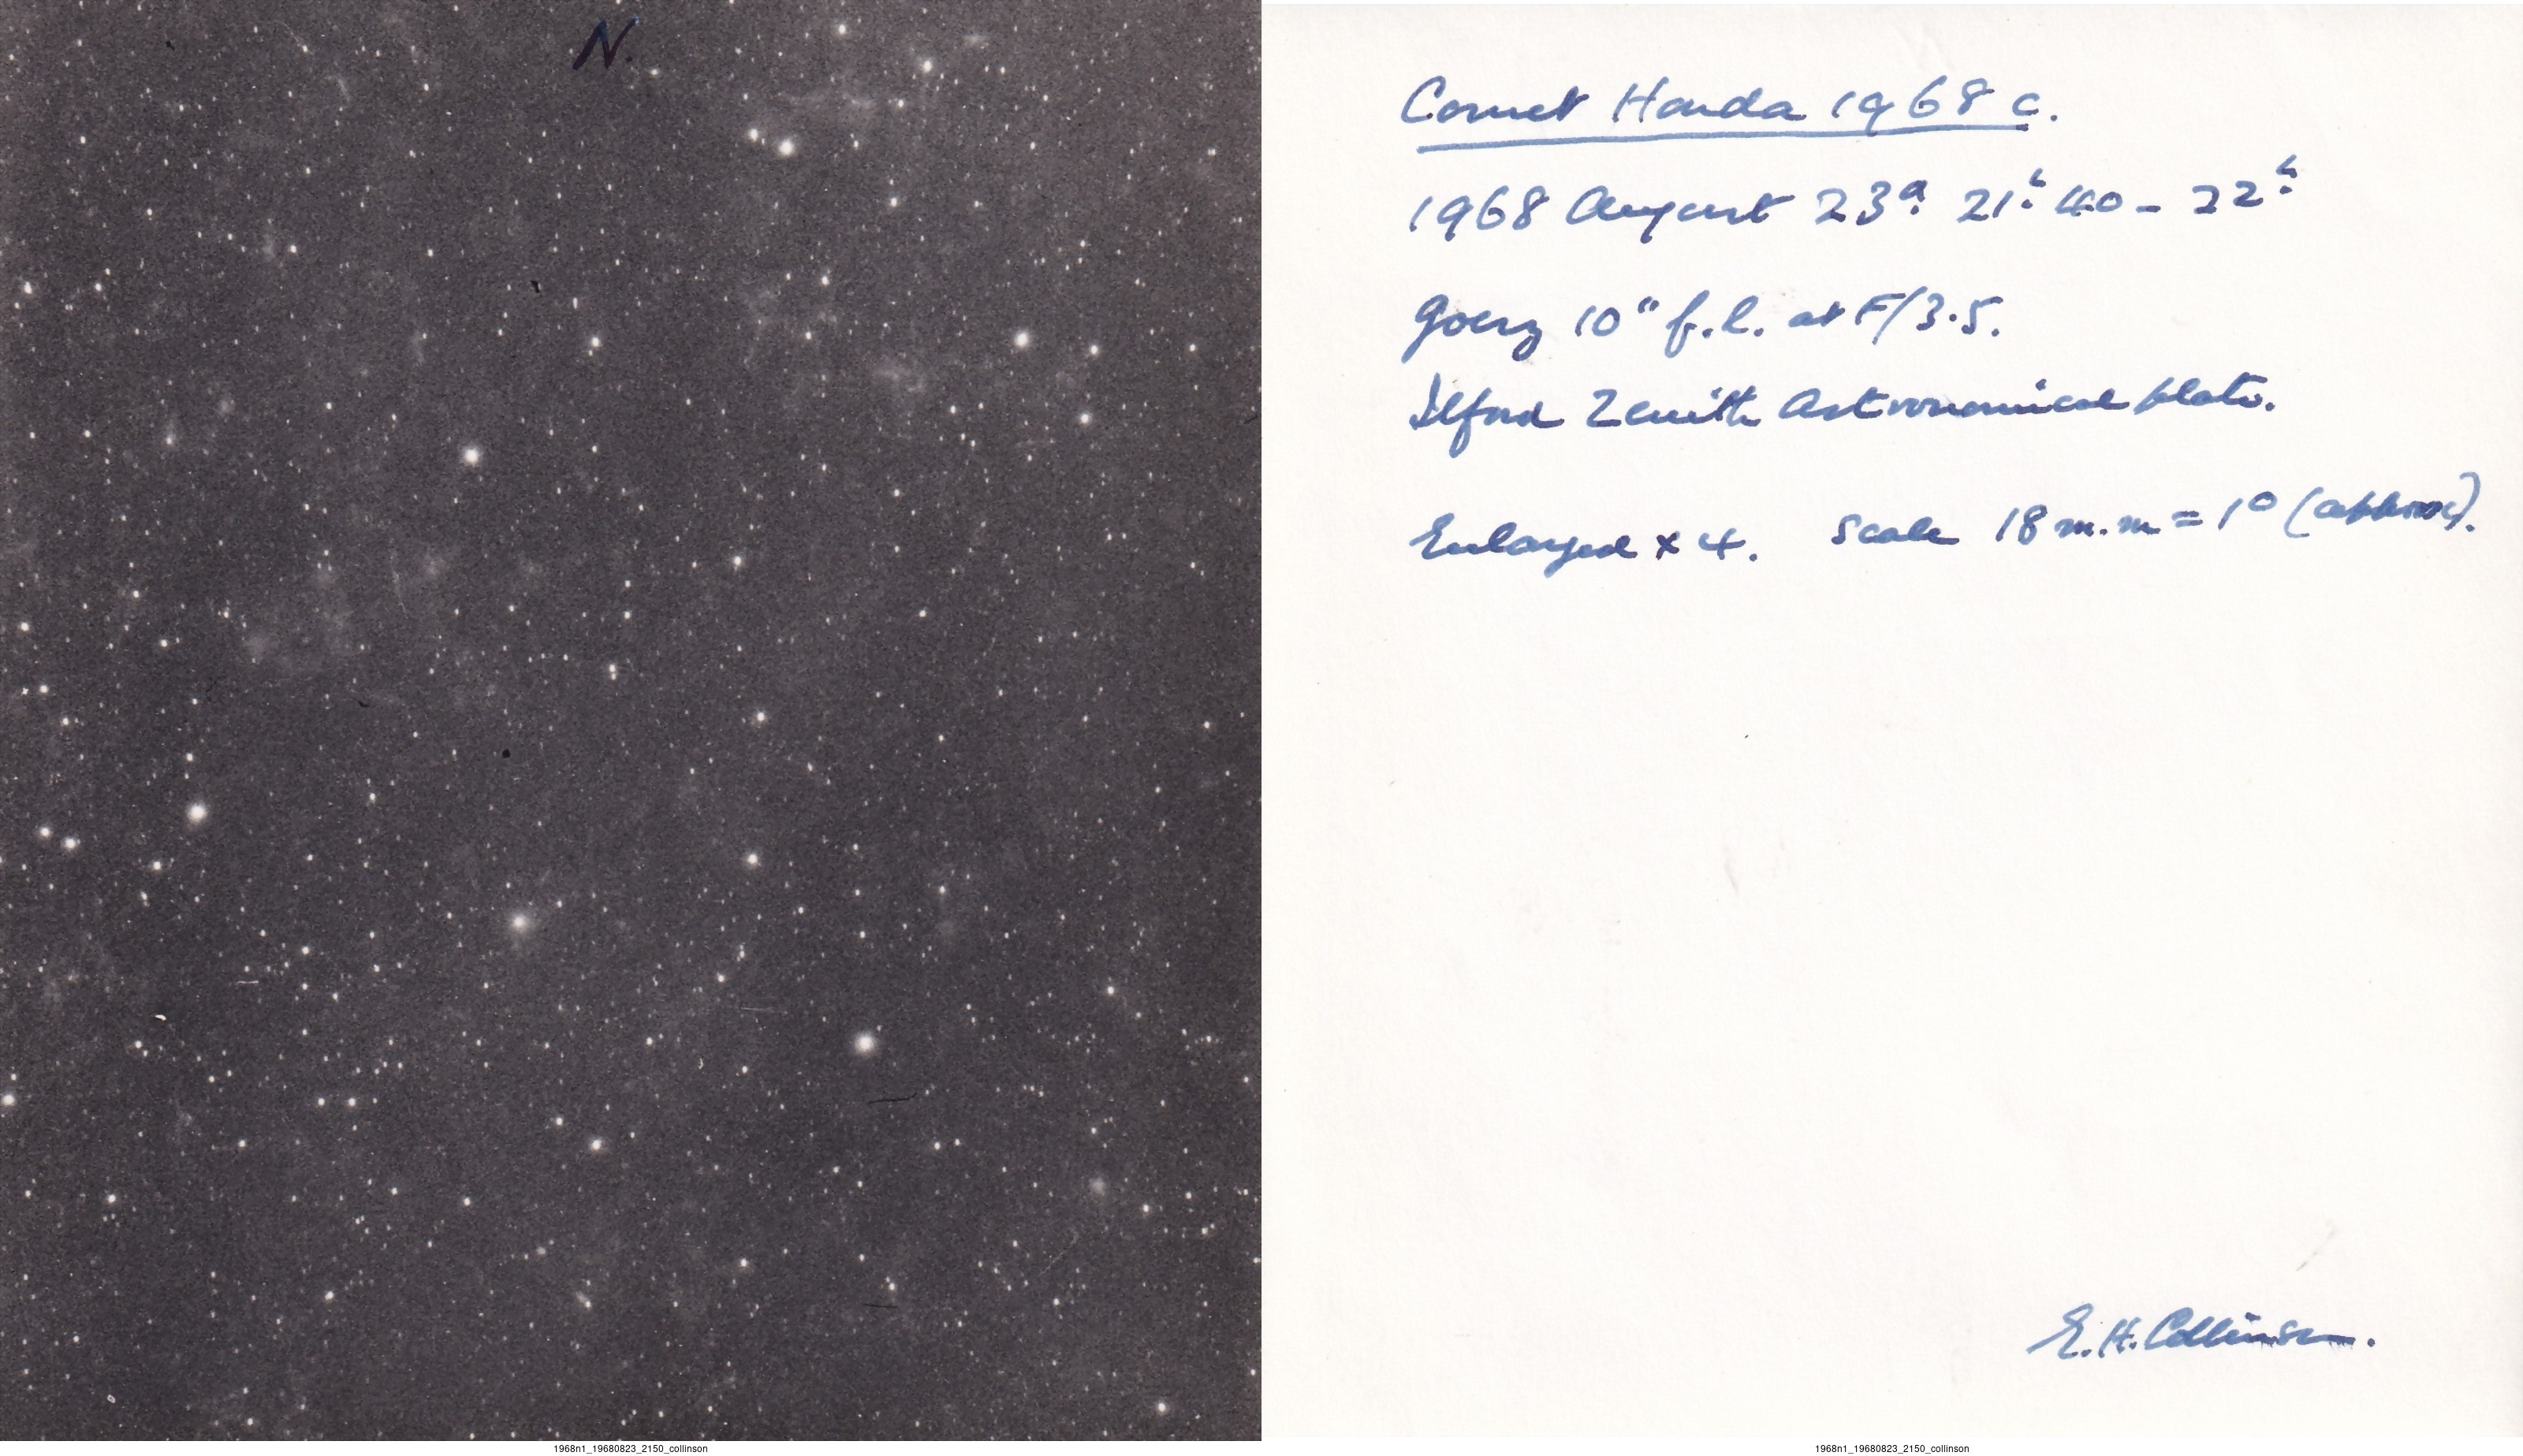 N.
Comet Honda 1968 c.
1968 August 23d. 21h. 40 - 22h.
Goerz 10" f.l. at F/3.5.
Ilford Zenith Astronomical plate.
Enlarged x 4. Scale 18 m.m = 1° (approx).
E.H. Collinson.
1968n1_19680823_2150_collinson
1968n1_19680823_2150_collinson